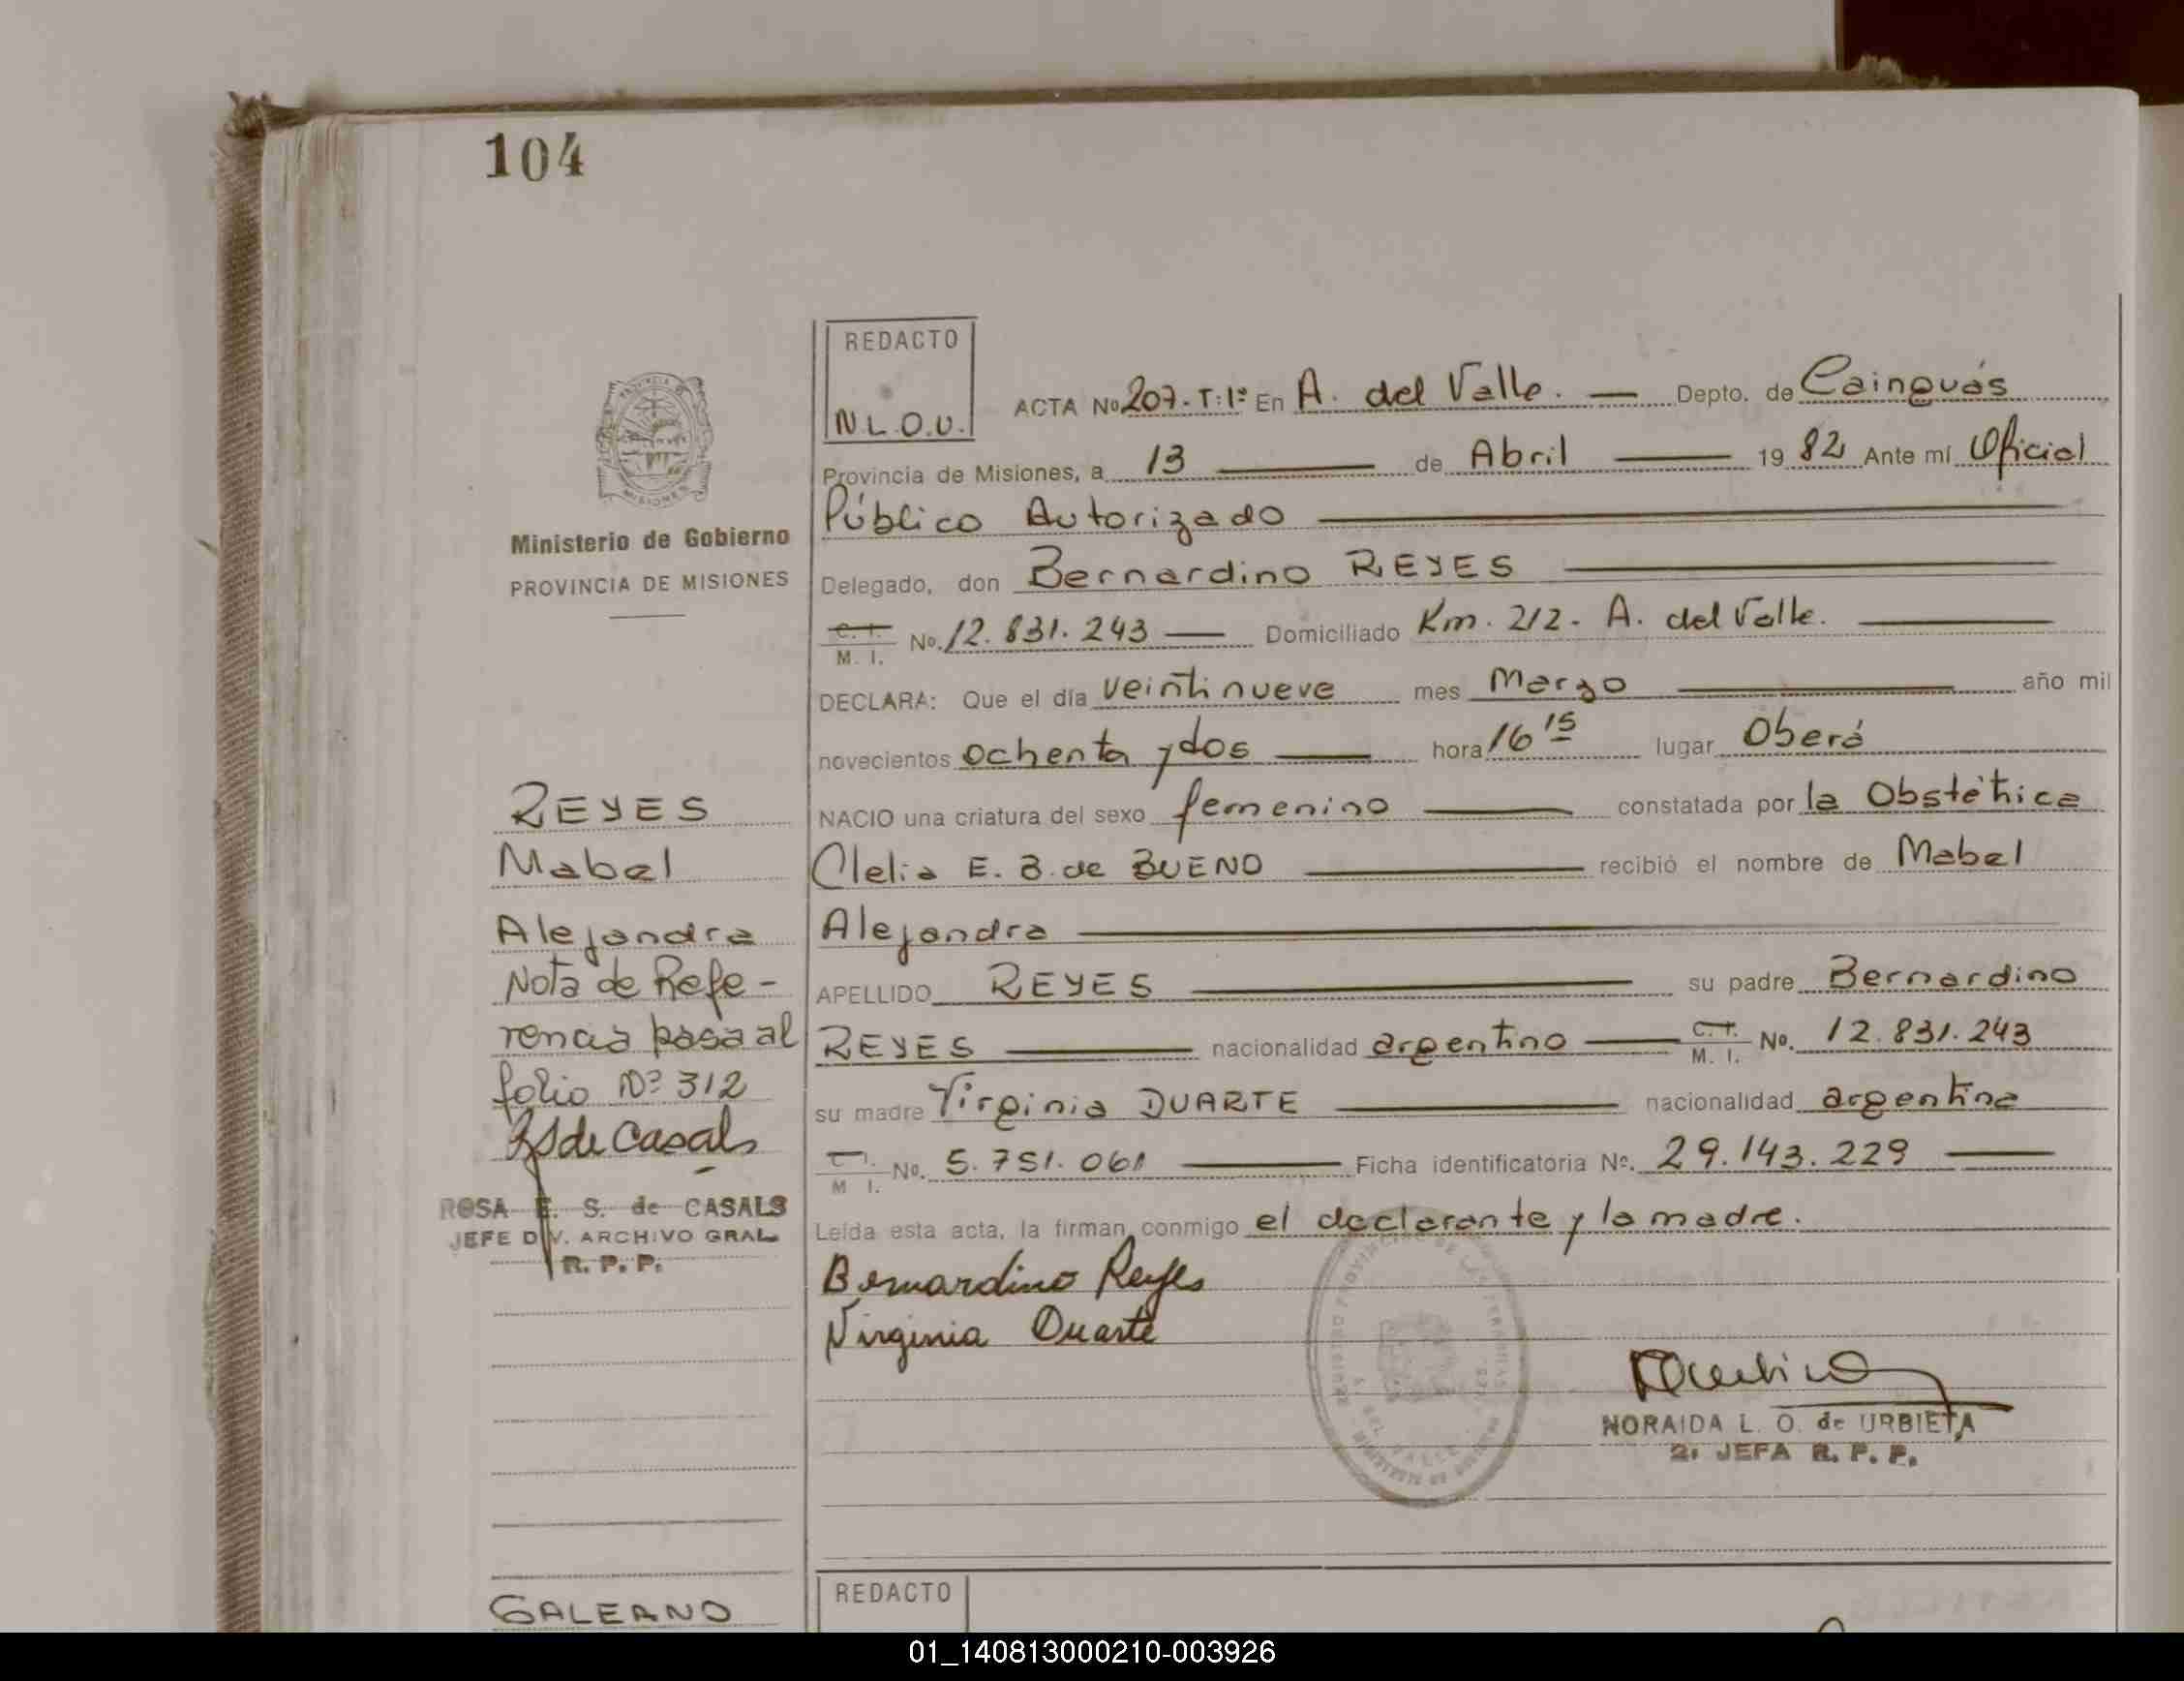 104
REDACTO
N.L.O.U.
ACTA No 207-T:1º En A. del Valle. Depto. de Cainguás
Provincia de Misiones, a 13 de Abril 1982 Ante mí Oficial
Público Autorizado
Ministerio de Gobierno
PROVINCIA DE MISIONES
Delegado, don Bernardino REYES
C. I.
M. I. No. 12.831.243 Domiciliado Km. 212. A. del Valle.
DECLARA: Que el día veintinueve mes Marzo año mil
novecientos ochenta y dos hora 16 15 lugar Oberá
REYES
NACIO una criatura del sexo femenino constatada por la Obstétrica
Mabel
Clelia E. B. de BUENO recibió el nombre de Mabel
Alejandra
Alejandra
Nota de Refe-
APELLIDO REYES su padre Bernardino
rencia pasa al
REYES nacionalidad argentino C. I. M. I. No. 12.831.243
folio Nº 312
su madre Virginia DUARTE nacionalidad argentina
RS de Casals
M I. No. 5.751.061 Ficha identificatoria No. 29.143.229
ROSA E. S. de CASALS
JEFE DIV. ARCHIVO GRAL
R. P. P.
Leída esta acta, la firman conmigo el declarante y la madre.
Bernardino Reyes
Virginia Duarte
NORAIDA L. O. de URBIETA
2ª JEFA R. P. P.
GALEANO
REDACTO
01_140813000210-003926